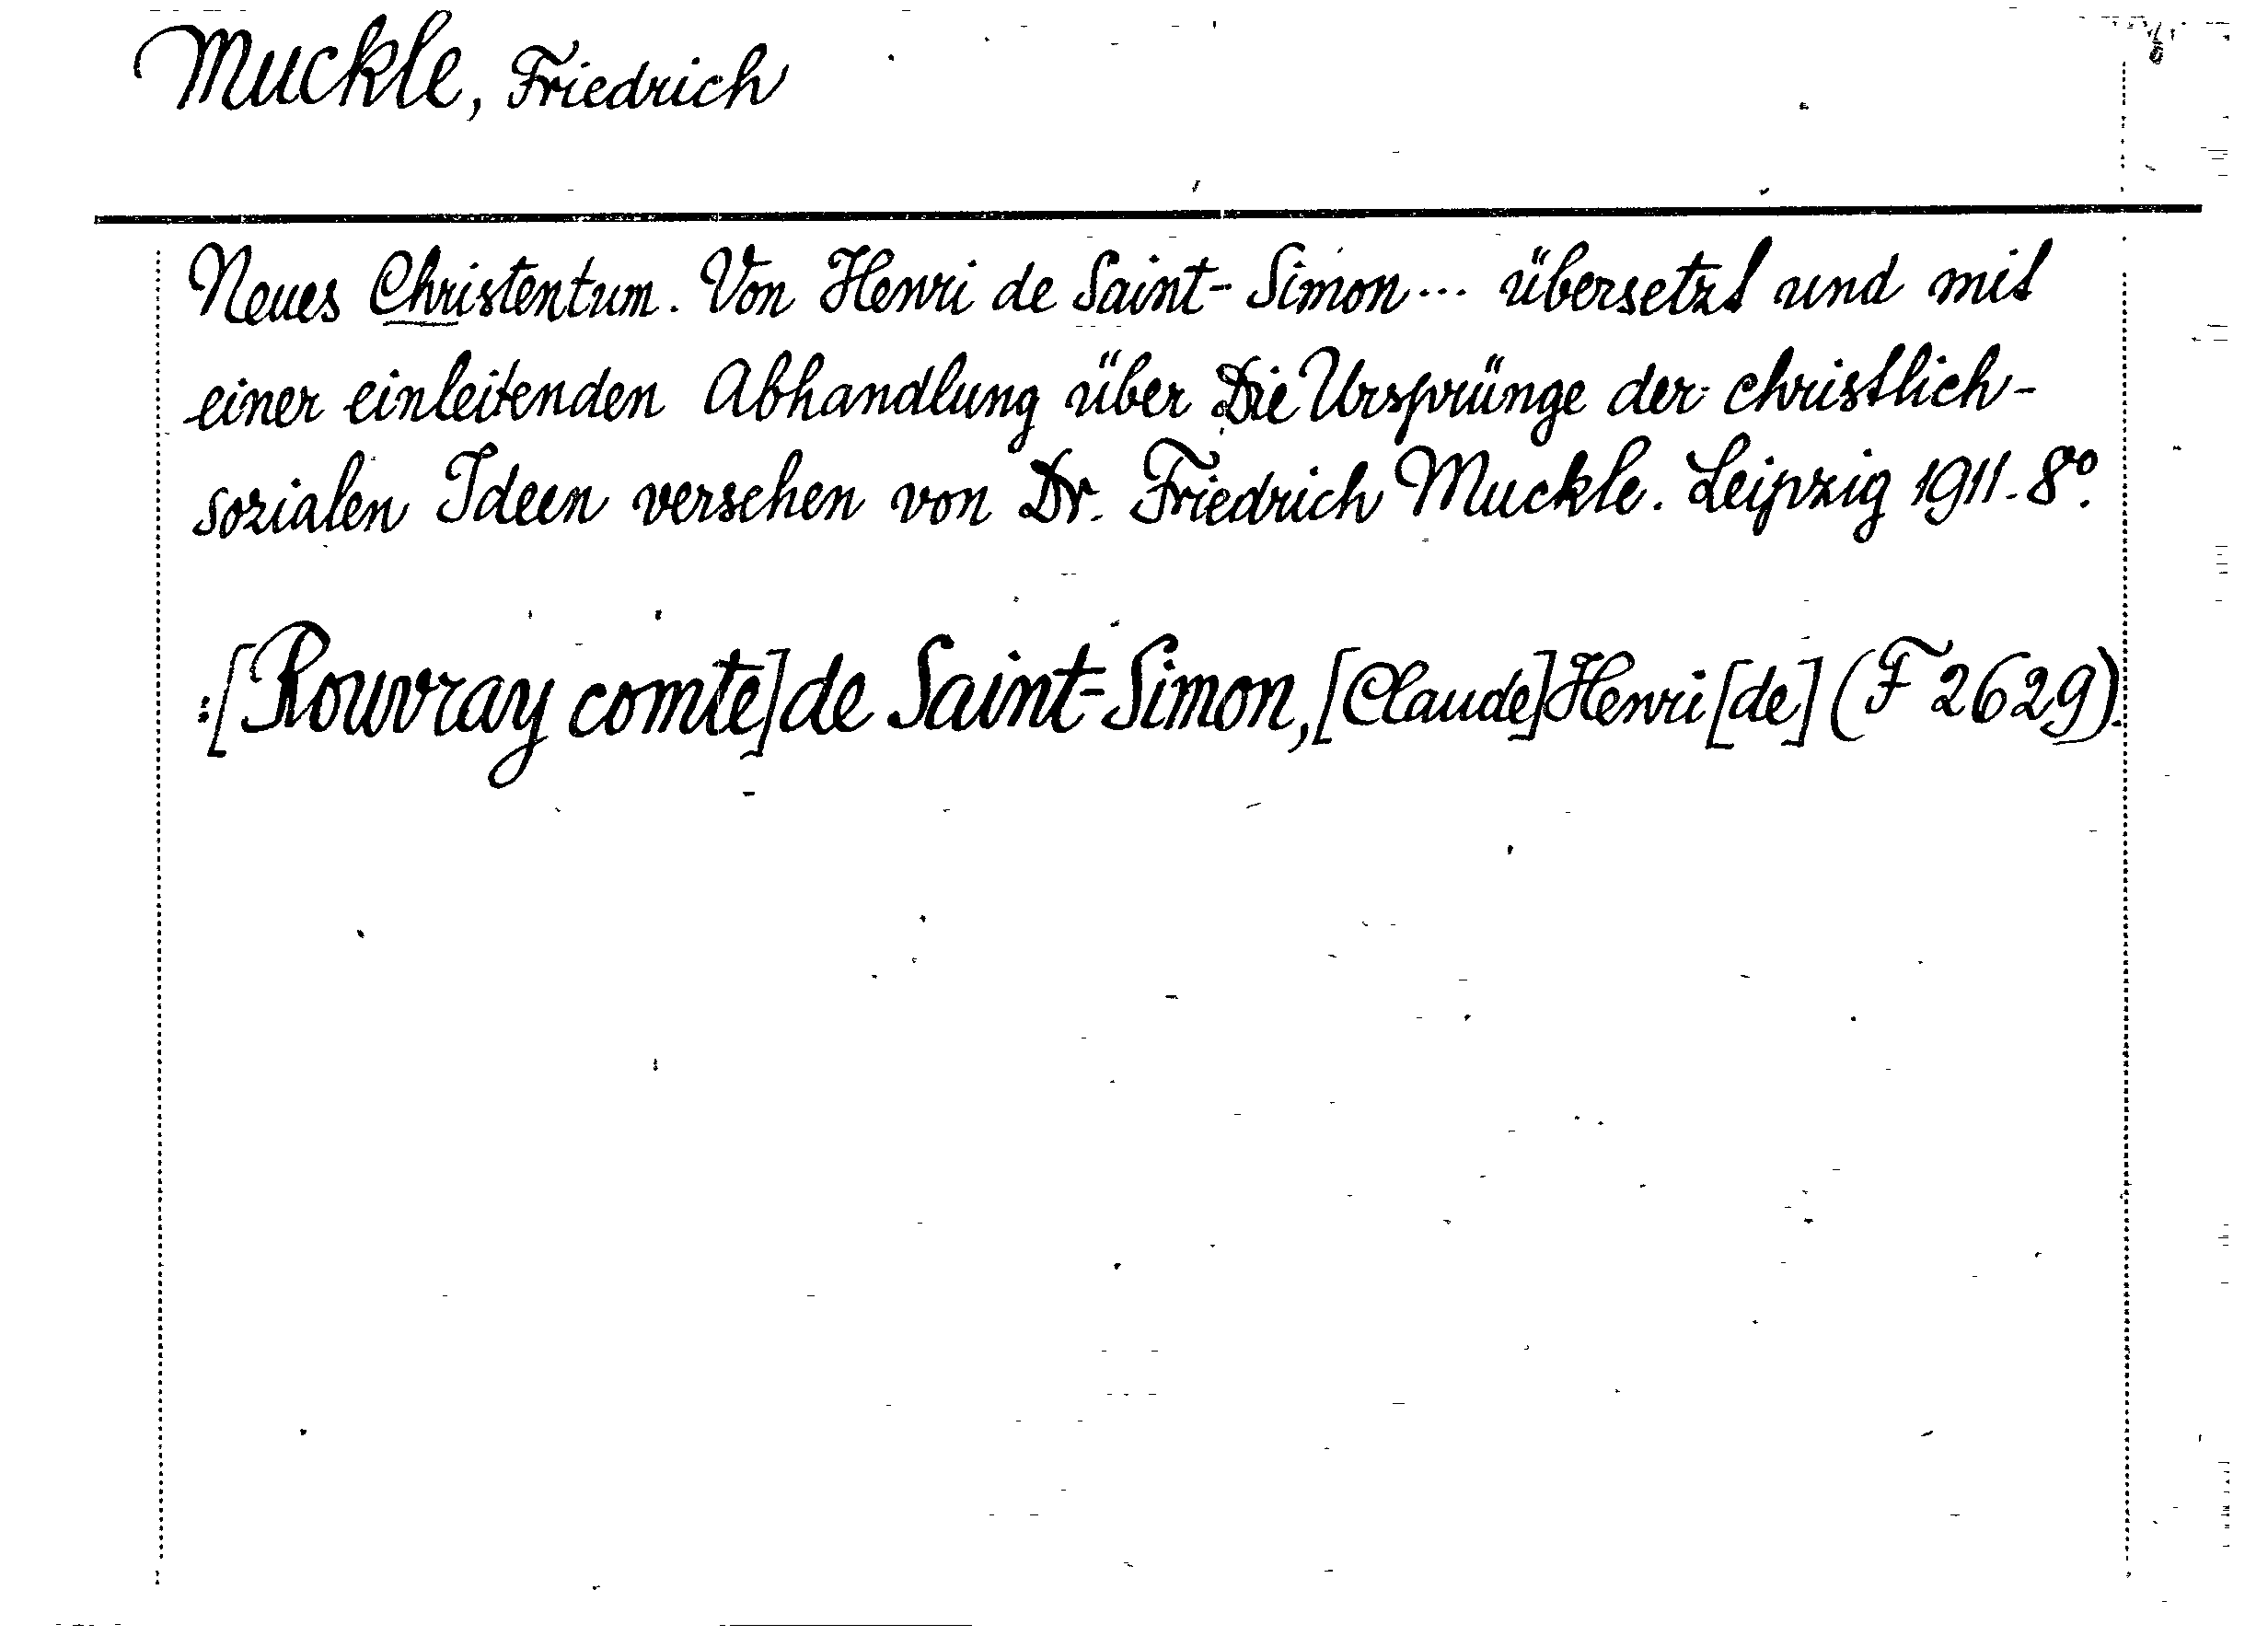 Muckle, Friedrich
Neues Christentum. Von Henri de Saint-Simon... übersetzt und mit
einer einleitenden Abhandlung über Die Ursprünge der christlich-
sozialen Ideen versehen von Dr. Friedrich Muckle. Leipzig 1911. 8°.
:[Rouvray comte] de Saint-Simon, [Claude] Henri [de] (F 2629).